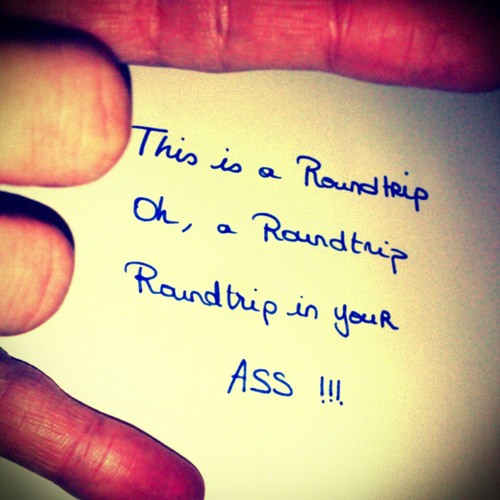 This is a Roundtrip
Oh, a Roundtrip
Roundtrip in youR
ASS !!!